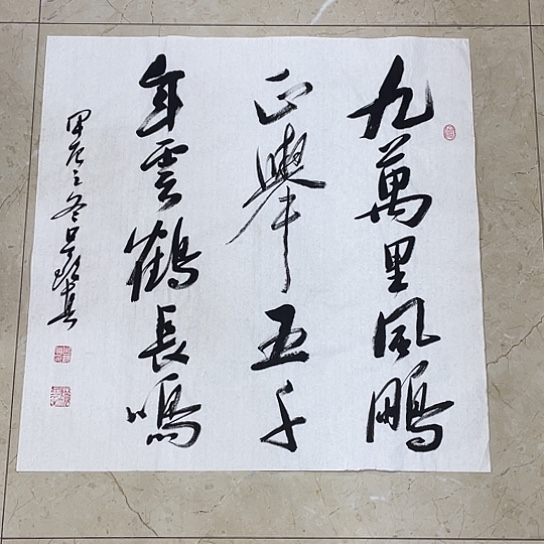 九萬里風鵬
正舉五千
年雲鶴長鳴
甲辰之冬